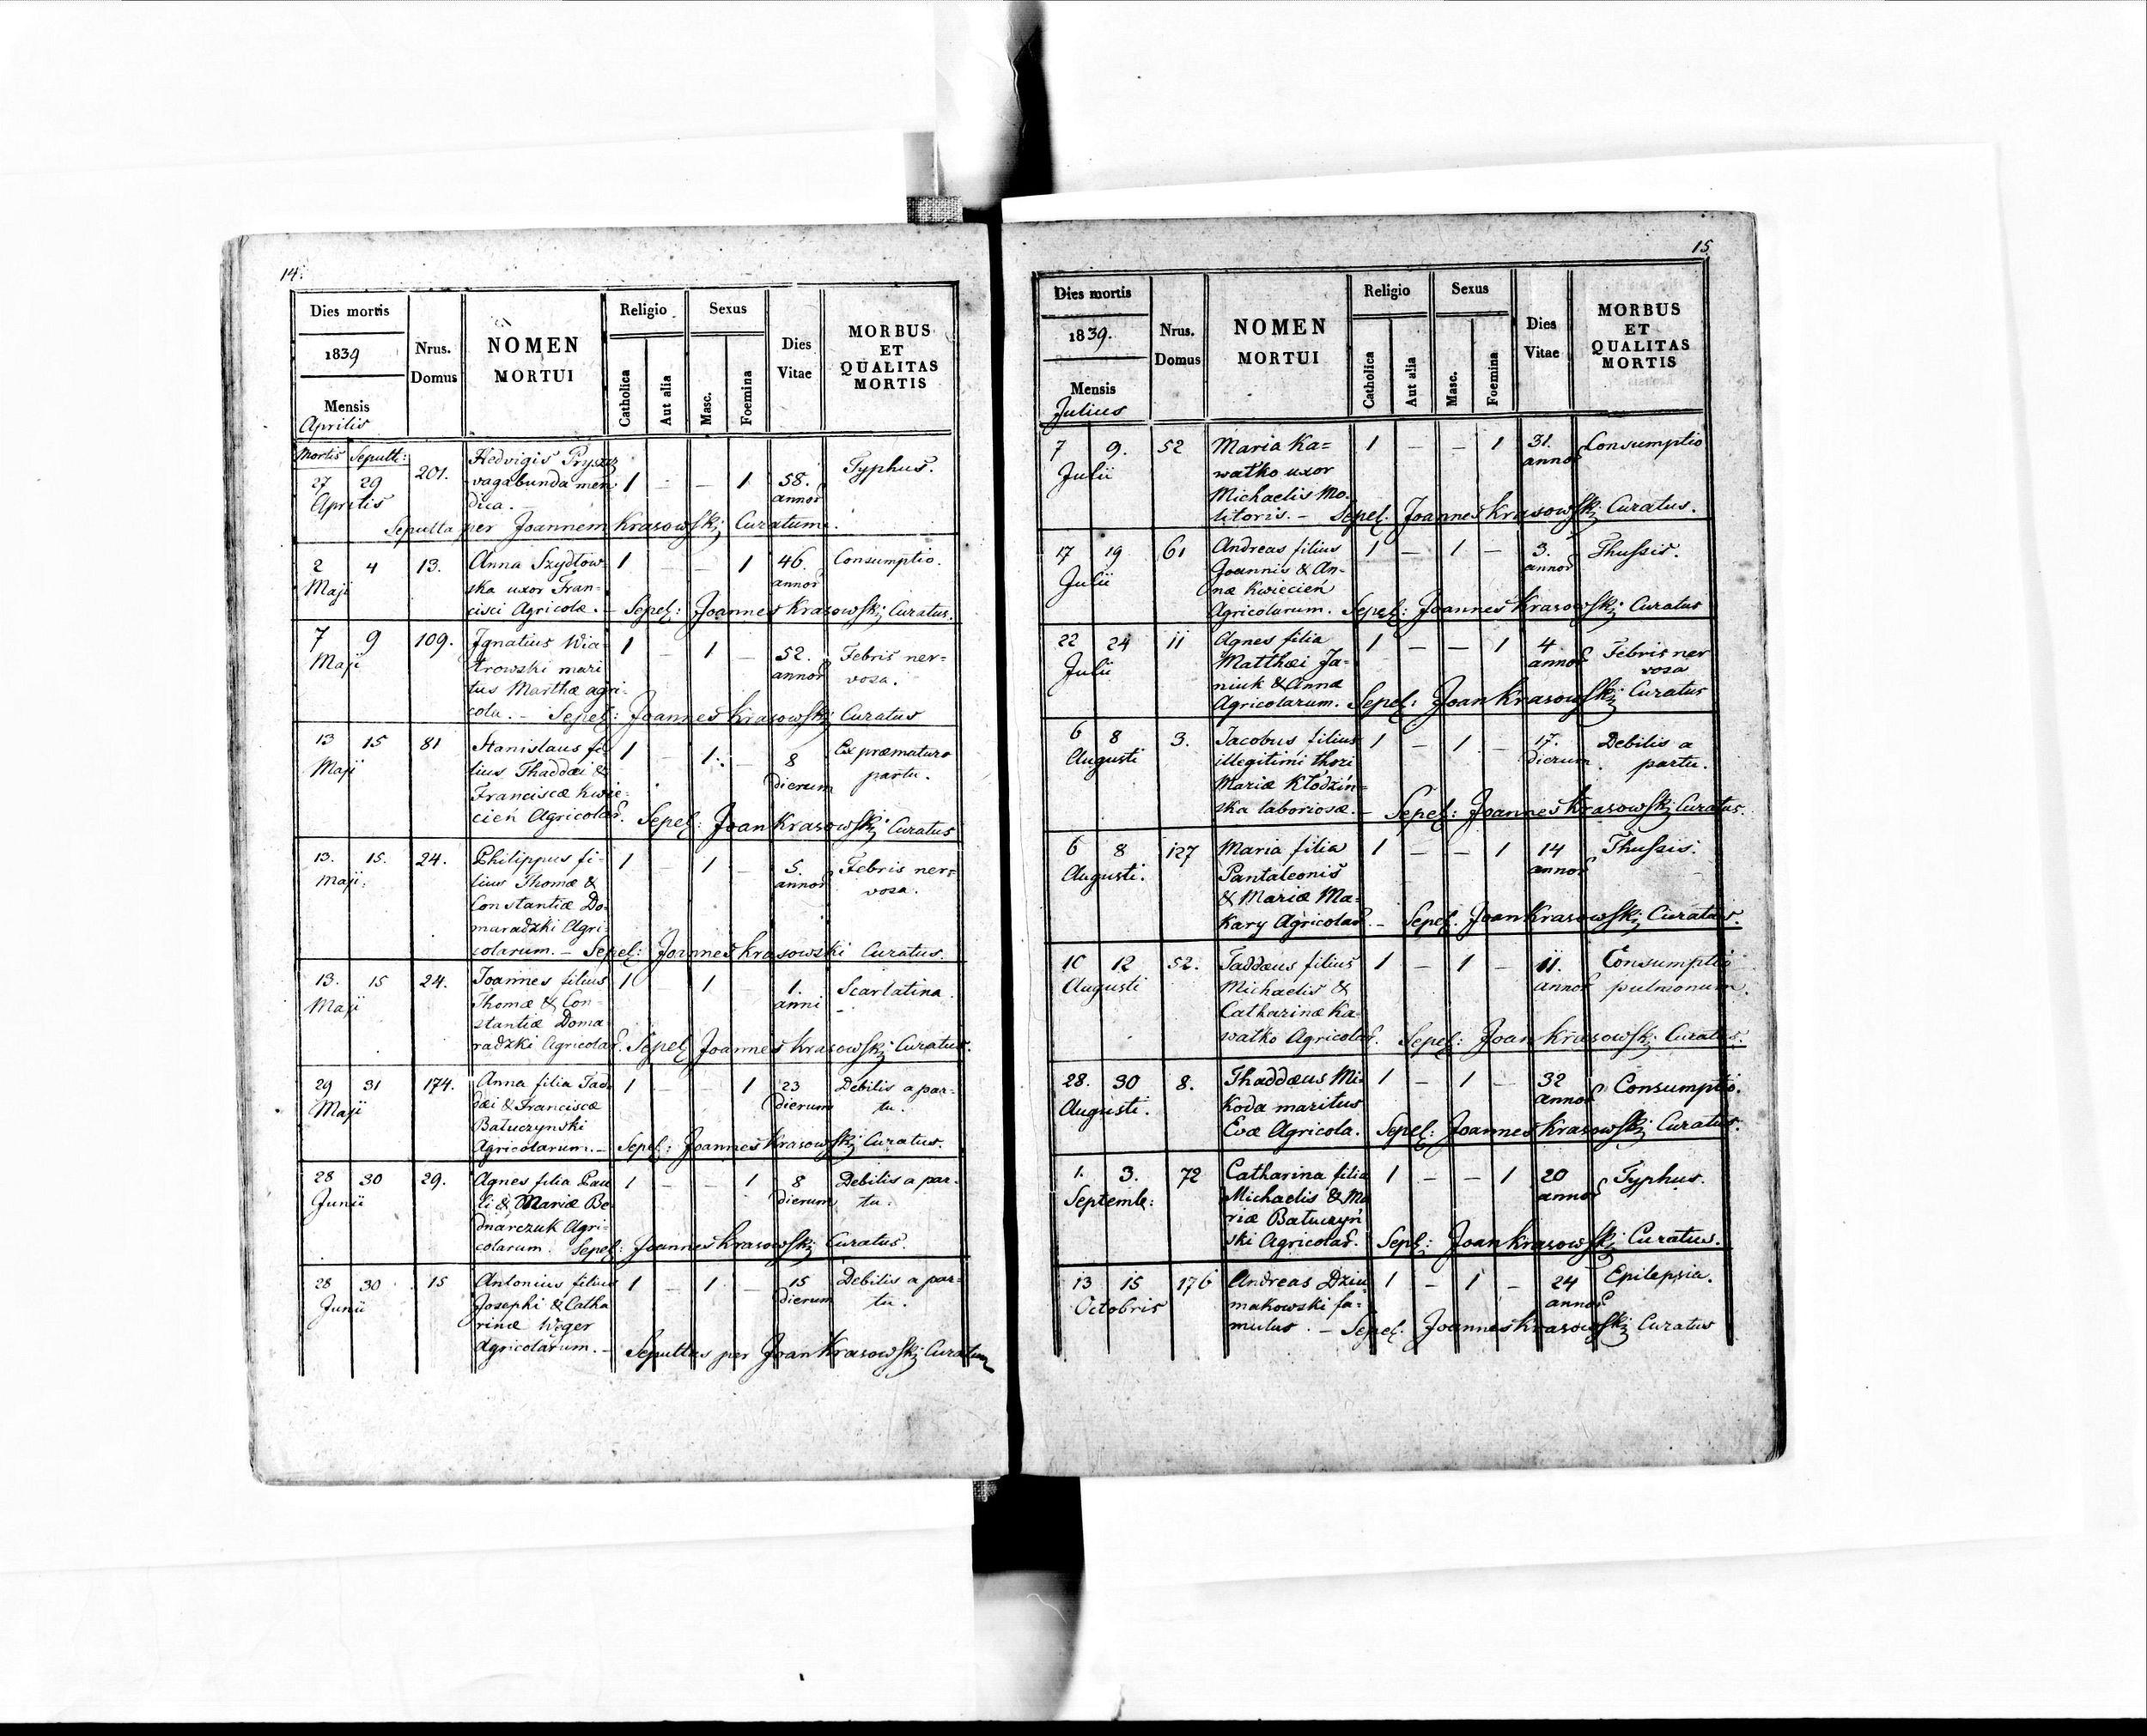 14.
Dies mortis
1839
Mensis
Aprilis
Nrus.
Domus
NOMEN
MORTUI
Religio
Catholica
Aut alia
Sexus
Masc.
Foemina
Dies
Vitae
MORBUS
ET
QUALITAS
MORTIS
Mortis Sepult:
27 29 201. Hedvigis Prysz 1 – – 1 58. Typhus.
Aprilis vagabunda men annor
dica. –
Sepulta per Joannem Krasowski Curatum.
2 4 13. Anna Szydłow- 1 – – 1 46. Consumptio.
Maji ska uxor Fran- annor
cisci Agricolæ. – Sepel: Joannes Krasowski Curatus.
7 9 109. Ignatius Wia- 1 – 1 – 52. Febris ner-
Maji trowski mari annor vosa.
tus Marthæ agri-
cola. – Sepel: Joannes Krasowski Curatus
13 15 81 Stanislaus fi- 1 – 1. – 8 Ex præmaturo
Maji lius Thaddæi & dierum partu.
Franciscæ Kwie-
cień Agricolar. Sepel: Joan Krasowski Curatus
13. 15. 24. Philippus fi- 1 – 1 – 5. Febris ner-
Maji. lius Thomæ & annor vosa.
Constantiæ Do-
maradzki Agri-
colarum. – Sepel: Joannes Krasowski Curatus.
13. 15 24. Joannes filius 1 – 1 – 1. Scarlatina.
Maji Thomæ & Con- anni
stantiæ Doma
radzki Agricolar. Sepel Joannes Krasowski Curatus.
29 31 174. Anna filia Tad- 1 – – 1 23 Debilis a par-
Maji dæi & Franciscæ dierum tu.
Batuczynski
Agricolarum. – Sepel: Joannes Krasowski Curatus.
28 30 29. Agnes filia Pau 1 – – 1 8 Debilis a par-
Junii li & Mariæ Be- dierum tu.
dnarczuk Agri-
colarum. Sepel: Joannes Krasowski Curatus.
28 30 15 Antonius filius 1 – 1. – 15 Debilis a par-
Junii Josephi & Catha dierum tu.
rinæ Weger
Agricolarum. – Sepultus per Joan Krasowski Curatum
15
Dies mortis
1839.
Mensis
Julius
Nrus.
Domus
NOMEN
MORTUI
Religio
Catholica
Aut alia
Sexus
Masc.
Foemina
Dies
Vitae
MORBUS
ET
QUALITAS
MORTIS
7 9. 52 Maria Ka= 1 – – 1 31. Consumptio
Julii wałko uxor annor
Michaelis Mo-
litoris. – Sepel. Joannes Krasowski Curatus.
17 19 61 Andreas filius 1 – 1 – 3. Thussis.
Julii Joannis & An- annor
næ Kwiecień
Agricolarum. Sepel: Joannes Krasowski Curatus
22 24 11 Agnes filia 1 – – 1 4 Febris ner
Julii Matthæi Ja- annor vosa
niuk & Annæ
Agricolarum. Sepel: Joan Krasowski Curatus
6 8 3. Jacobus filius 1 – 1 – 17. Debilis a
Augusti illegitimi thori dierum. partu.
Mariæ Kłodzin-
ska laboriosæ. – Sepel: Joannes Krasowski Curatus.
6 8 127 Maria filia 1 – – 1 14 Thussis.
Augusti. Pantaleonis annor
& Mariæ Ma-
kary Agricolar. – Sepel: Joan Krasowski Curatus.
10 12 52. Taddæus filius 1 – 1 – 11. Consumptio
Augusti Michaelis & annor pulmonum.
Catharinæ Ka-
wałko Agricolar. Sepel: Joan Krasowski Curatus.
28. 30 8. Thaddæus Mi- 1 – 1 – 32 Consumptio.
Augusti. koda maritus annor
Evæ Agricola. Sepel: Joannes Krasowski Curatus.
1. 3. 72 Catharina filia 1 – – 1 20 Typhus.
Septemb: Michaelis & Ma annor
riæ Batuczyń
ski Agricolar. Sepl: Joan Krasowski Curatus.
13 15 176 Andreas Dziu 1 – 1 – 24 Epilepsia.
Octobris makowski fa- annor
mulus. – Sepel. Joannes Krasowski Curatus